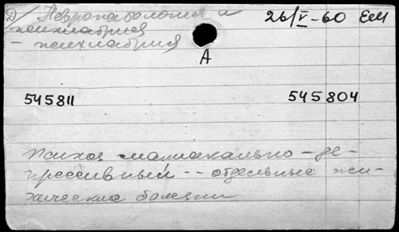 Д/ Невропатология и 26/V-60 ЕеМ
психиатрия
- психиатрия
А
545811 545804
Психоз маниакально-де-
прессивный -- отдельные пси-
хические болезни